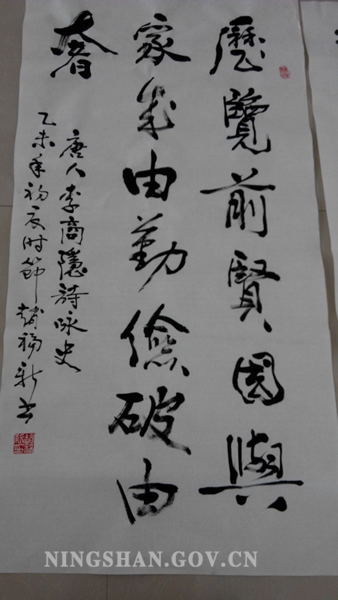 歷覽前賢國與
家成由勤儉破由
奢
唐人李商隱詩咏史
乙未年初夏时節 福新书
NINGSHAN.GOV.CN